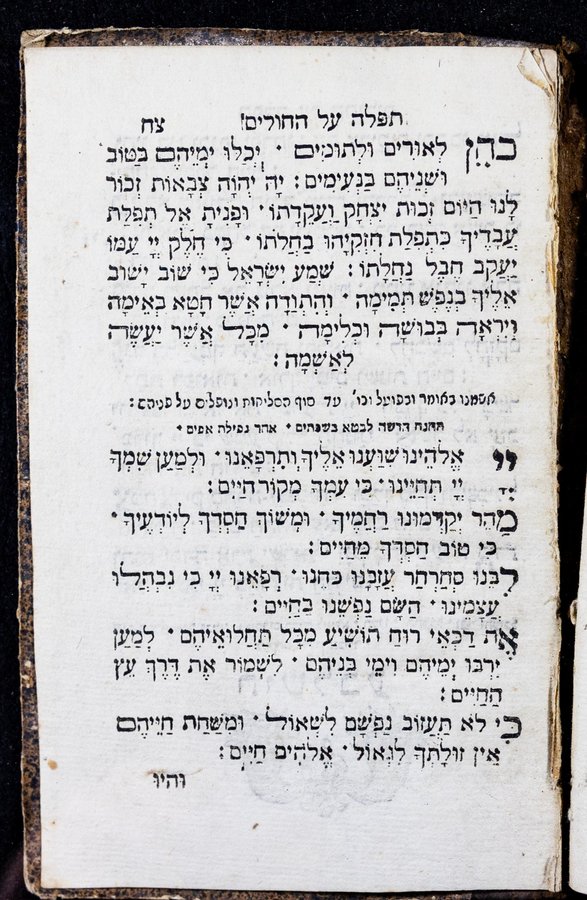 תפלה על החולים! צח
כהן לאורים ולתומים · יְכַלּוּ יְמֵיהֶם בַּטּוֹב
וּשְׁנֵיהֶם בַּנְּעִימִים : יָהּ יְהֹוָה צְבָאוֹת זְכוֹר
לָנוּ הַיּוֹם זְכוּת יִצְחָק וַעֲקֵדָתוֹ · וּפָנִיתָ אֶל תְּפִלַּת
עֲבָדֶיךָ כִּתְפִלַּת חִזְקִיָּהוּ בַּחֲלֹתוֹ · כִּי חֵלֶק יְיָ עַמּוֹ
יַעֲקֹב חֶבֶל נַחֲלָתוֹ : שְׁמַע יִשְׂרָאֵל כִּי שׁוֹב יָשׁוּב
אֵלֶיךָ בְנֶפֶשׁ תְּמִימָה · וְהִתְוַדָּה אֲשֶׁר חָטָא בְּאֵימָה
וְיִרְאָה בְּבוּשָׁה וּכְלִימָה · מִכָּל אֲשֶׁר יַעֲשֶׂה
לְאַשְׁמָה :
אשמנו באומר ובפועל וכו׳ עד סוף הסליחות ונופלים על פניהם :
תחנה הדשה לבטא בשפתים · אחר נפילת אפים ·
יְיָ אֱלֹהֵינוּ שִׁוַּעְנוּ אֵלֶיךָ וַתִּרְפָּאֵנוּ · וּלְמַעַן שִׁמְךָ
יְיָ תְּחַיֵּינוּ · כִּי עִמְּךָ מְקוֹר חַיִּים :
מַהֵר יְקַדְּמוּנוּ רַחֲמֶיךָ · וּמְשׁוֹךְ חַסְדְּךָ לְיוֹדְעֶיךָ ·
כִּי טוֹב חַסְדְּךָ מֵחַיִּים :
לִבֵּנוּ סְחַרְחַר עֲזָבָנוּ כֹּחֵנוּ · רְפָאֵנוּ יְיָ כִּי נִבְהֲלוּ
עֲצָמֵינוּ · הַשָּׂם נַפְשֵׁנוּ בַּחַיִּים :
אֶת דַּכְּאֵי רוּחַ תּוֹשִׁיעַ מִכָּל תַּחֲלוּאֵיהֶם · לְמַעַן
יִרְבּוּ יְמֵיהֶם וִימֵי בְנֵיהֶם · לִשְׁמוֹר אֶת דֶּרֶךְ עֵץ
הַחַיִּים :
כִּי לֹא תַעֲזוֹב נַפְשָׁם לִשְׁאוֹל · וּמִשַּׁחַת חַיֵּיהֶם
אֵין זוּלָתְךָ לִגְאוֹל · אֱלֹהִים חַיִּים :
והיו